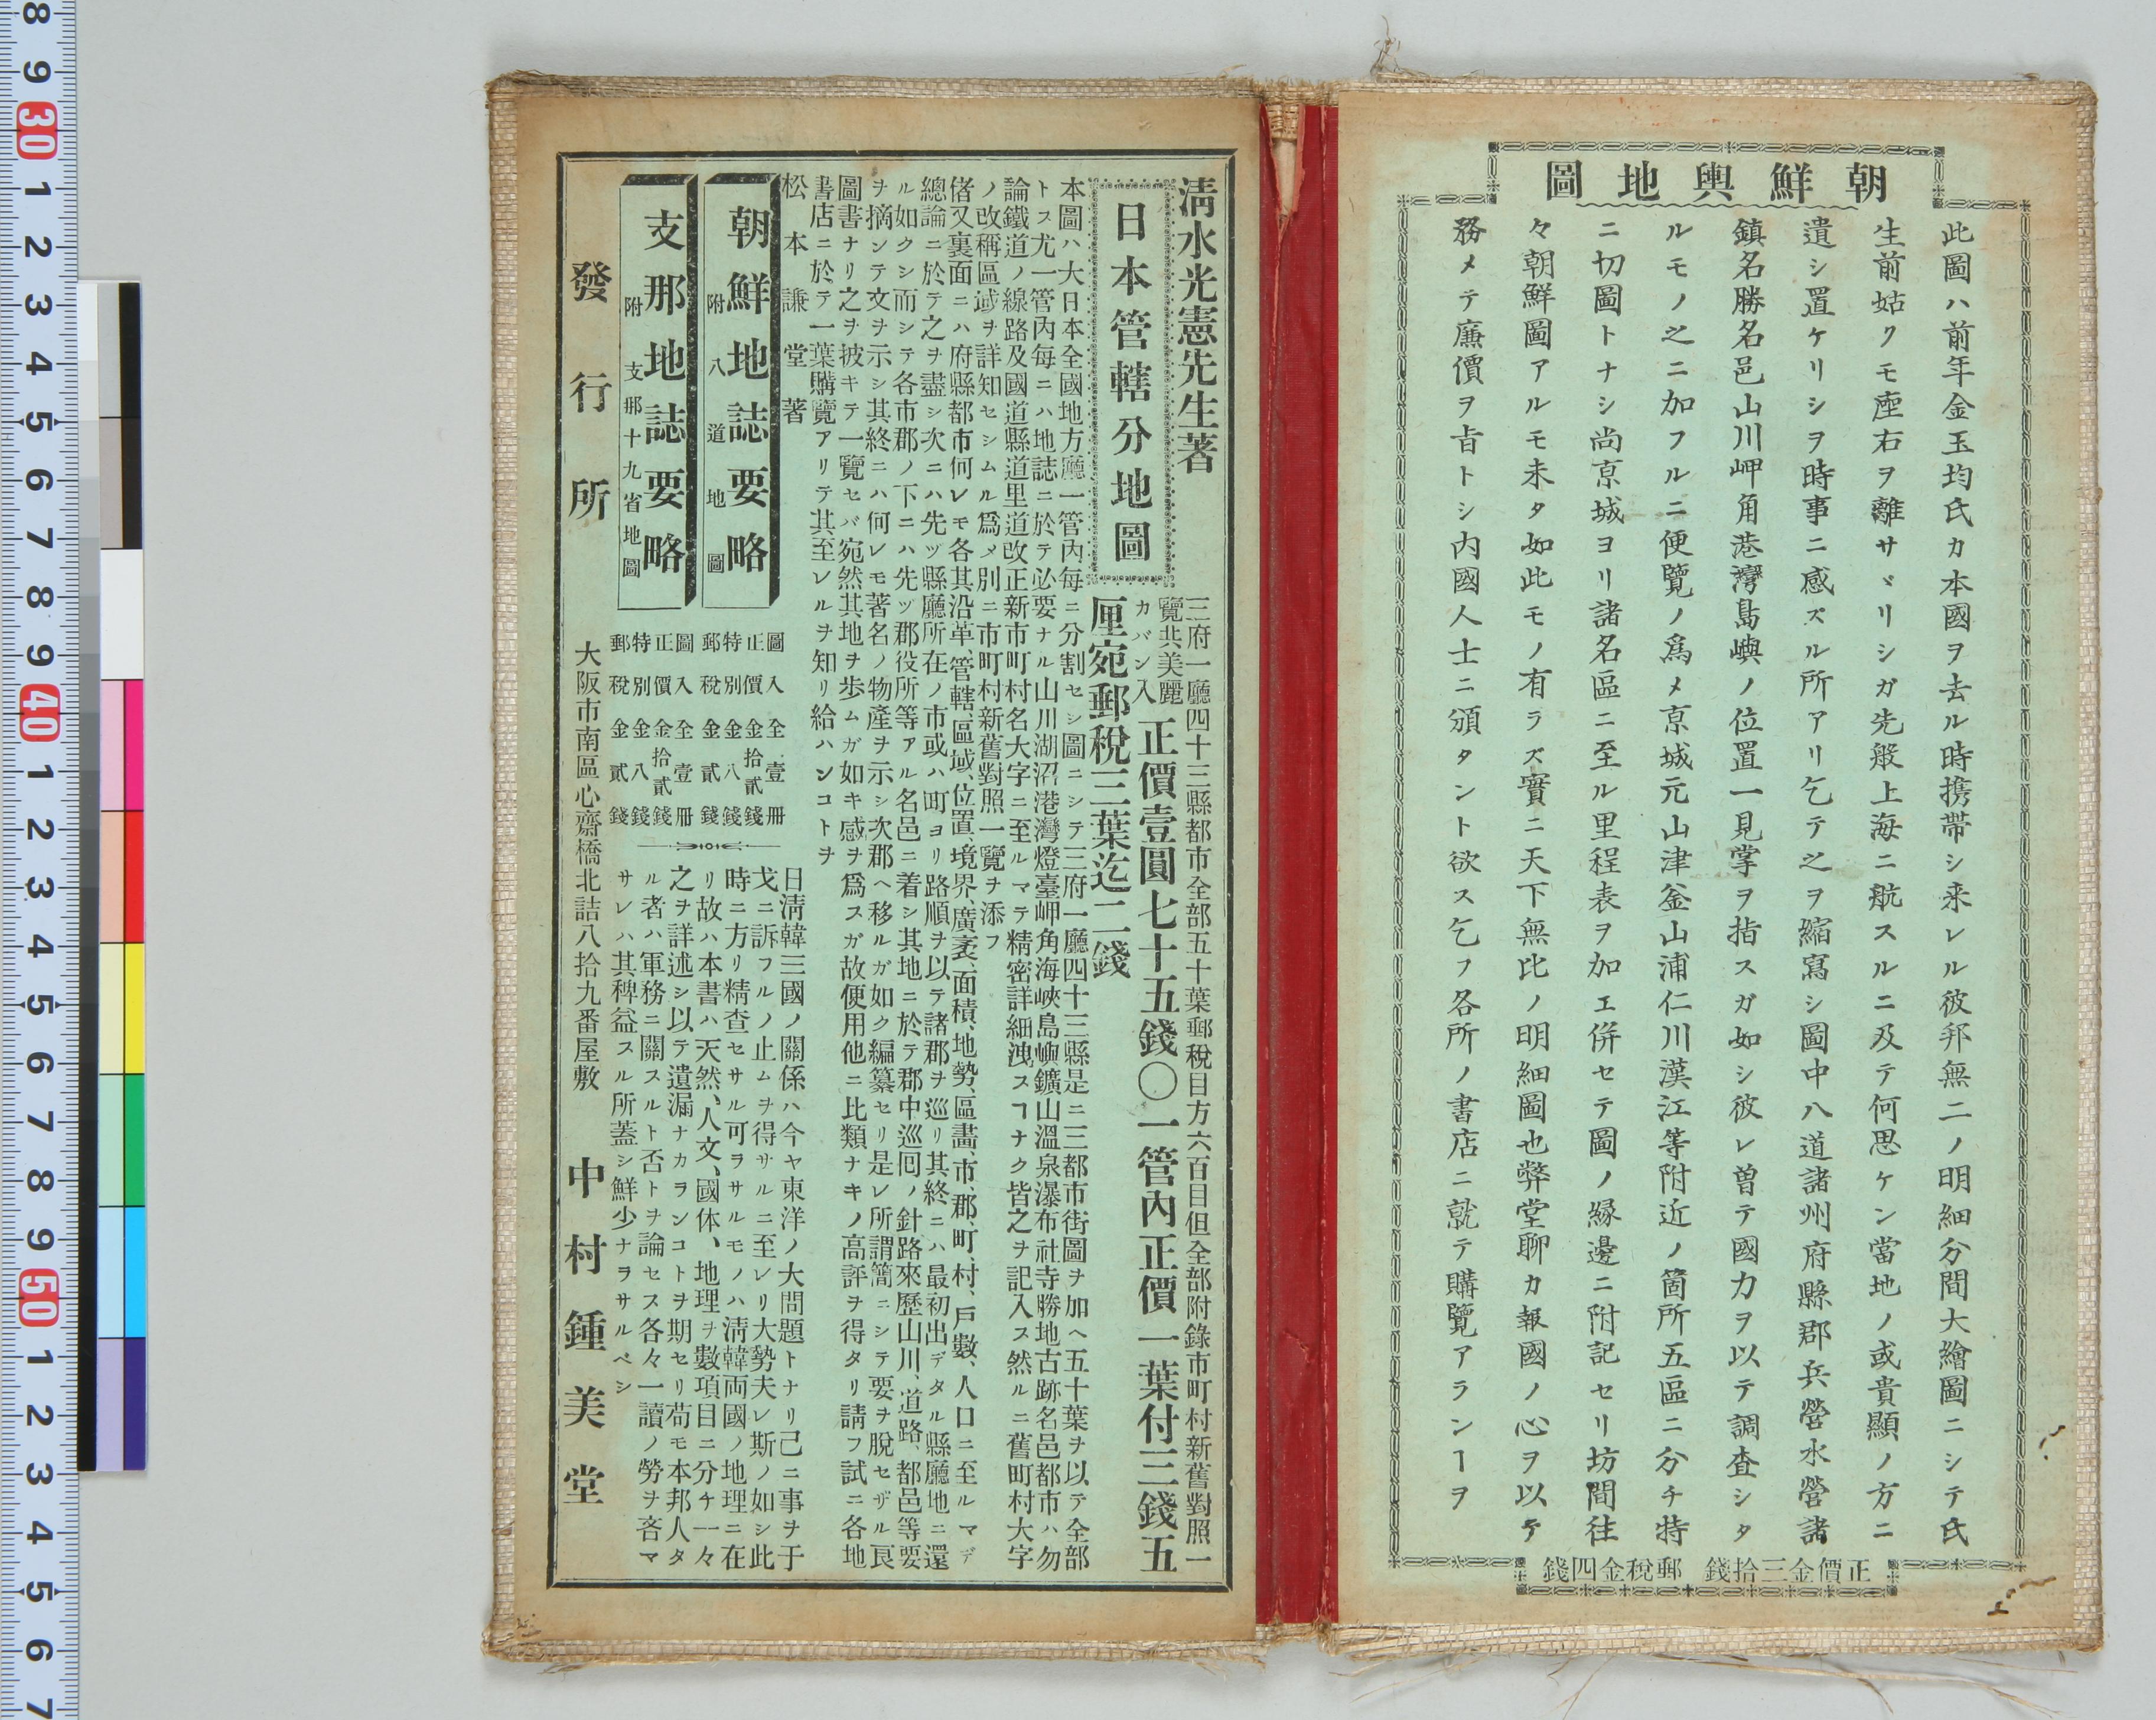 朝鮮輿地圖
此圖ハ前年金玉均氏カ本國ヲ去ル時携帶シ来レル彼邦無二ノ明細分間大繪圖ニシテ氏
生前姑クモ座右ヲ離サヾリシガ先般上海ニ航スルニ及テ何思ケン當地ノ或貴顯ノ方ニ
遺シ置ケリシヲ時事ニ感ズル所アリ乞テ之ヲ縮寫シ圖中八道諸州府縣郡兵營水營諸
鎮名勝名邑山川岬角港灣島嶼ノ位置一見掌ヲ指スガ如シ彼レ曽テ國力ヲ以テ調査シタ
ルモノ之ニ加フルニ便覽ノ爲メ京城元山津釜山浦仁川漢江等附近ノ箇所五區ニ分チ特
ニ切圖トナシ尚京城ヨリ諸名區ニ至ル里程表ヲ加エ併セテ圖ノ縁邊ニ附記セリ坊間往
々朝鮮圖アルモ未タ如此モノ有ラズ實ニ天下無比ノ明細圖也弊堂聊カ報國ノ心ヲ以テ
務メテ廉價ヲ旨トシ内國人士ニ頒タント欲ス乞フ各所ノ書店ニ就テ購覽アランヿヲ
正價金三拾錢 郵稅金四錢
淸水光憲先生著
日本管轄分地圖
三府一廳四十三縣都市全部五十葉郵稅目方六百目但全部附錄市町村新舊對照一
覽共美麗
カバン入
正價壹圓七十五錢〇一管內正價一葉付三錢五
厘宛郵稅三葉迄二錢
本圖ハ大日本全國地方廳一管內毎ニ分割セシ圖ニシテ三府一廳四十三縣是ニ三都市街圖ヲ加ヘ五十葉ヲ以テ全部
トス尤一管內毎ニハ地誌ニ於テ必要ナル山川湖沼港灣燈臺岬角海峽島嶼鑛山溫泉瀑布社寺勝地古跡名邑都市ハ勿
論鐵道ノ線路及國道縣道里道改正新市町村名大字ニ至ルマテ精密詳細洩スヿナク皆之ヲ記入ス然ルニ舊町村大字
ノ改稱區域ヲ詳知セシムル爲メ別ニ市町村新舊對照一覽ヲ添フ
偖又裏面ニハ府縣都市何レモ各其沿革、管轄、區域、位置、境界、廣袤、面積、地勢、區畵、市、郡、町、村、戶數、人口ニ至ルマデ
總論ニ於テ之ヲ盡シ次ニハ先ツ縣廳所在ノ市或ハ町ヨリ路順ヲ以テ諸郡ヲ巡リ其終ニハ最初出デタル縣廳地ニ還
ル如クシ而シテ各市郡ノ下ニハ先ヅ郡役所等アル名邑ニ着シ其地ニ於テ郡中巡囘ノ針路來歷山川、道路、都邑等要
ヲ摘ンテ文ヲ示シ其終ニハ何レモ著名ノ物產ヲ示シ次郡ヘ移ルガ如ク編纂セリ是レ所謂簡ニシテ要ヲ脫セザル良
圖書ナリ之ヲ披キテ一覽セバ宛然其地ヲ步ムガ如キ感ヲ爲スガ故便用他ニ比類ナキノ高評ヲ得タリ請フ試ニ各地
書店ニ於テ一葉購覽アリテ其至レルヲ知リ給ハンコトヲ
松本謙堂著
朝鮮地誌要略
附 八道地圖
圖入全壹冊
正價金拾貳錢
特別金八錢
郵稅金貳錢
支那地誌要略
附 支那十九省地圖
圖入全壹冊
正價金拾貳錢
特別金八錢
郵稅金貳錢
日淸韓三國ノ關係ハ今ヤ東洋ノ大問題トナリ己ニ事ヲ于
戈ニ訴フルノ止ムヲ得サルニ至レリ大勢夫レ斯ノ如シ此
時ニ方リ精查セサル可ヲサルモノハ淸韓両國ノ地理ニ在
リ故ハ本書ハ天然、人文、國体、地理ヲ數項目ニ分チ一々
之ヲ詳述シ以テ遺漏ナカランコトヲ期セリ苟モ本邦人タ
ル者ハ軍務ニ關スルト否トヲ論セス各々一讀ノ勞ヲ吝マ
サレハ其稗益スル所蓋シ鮮少ナラサルベシ
發行所 大阪市南區心齋橋北詰八拾九番屋敷 中村鍾美堂
8 9 30 1 2 3 4 5 6 7 8 9 40 1 2 3 4 5 6 7 8 9 50 1 2 3 4 5 6 7